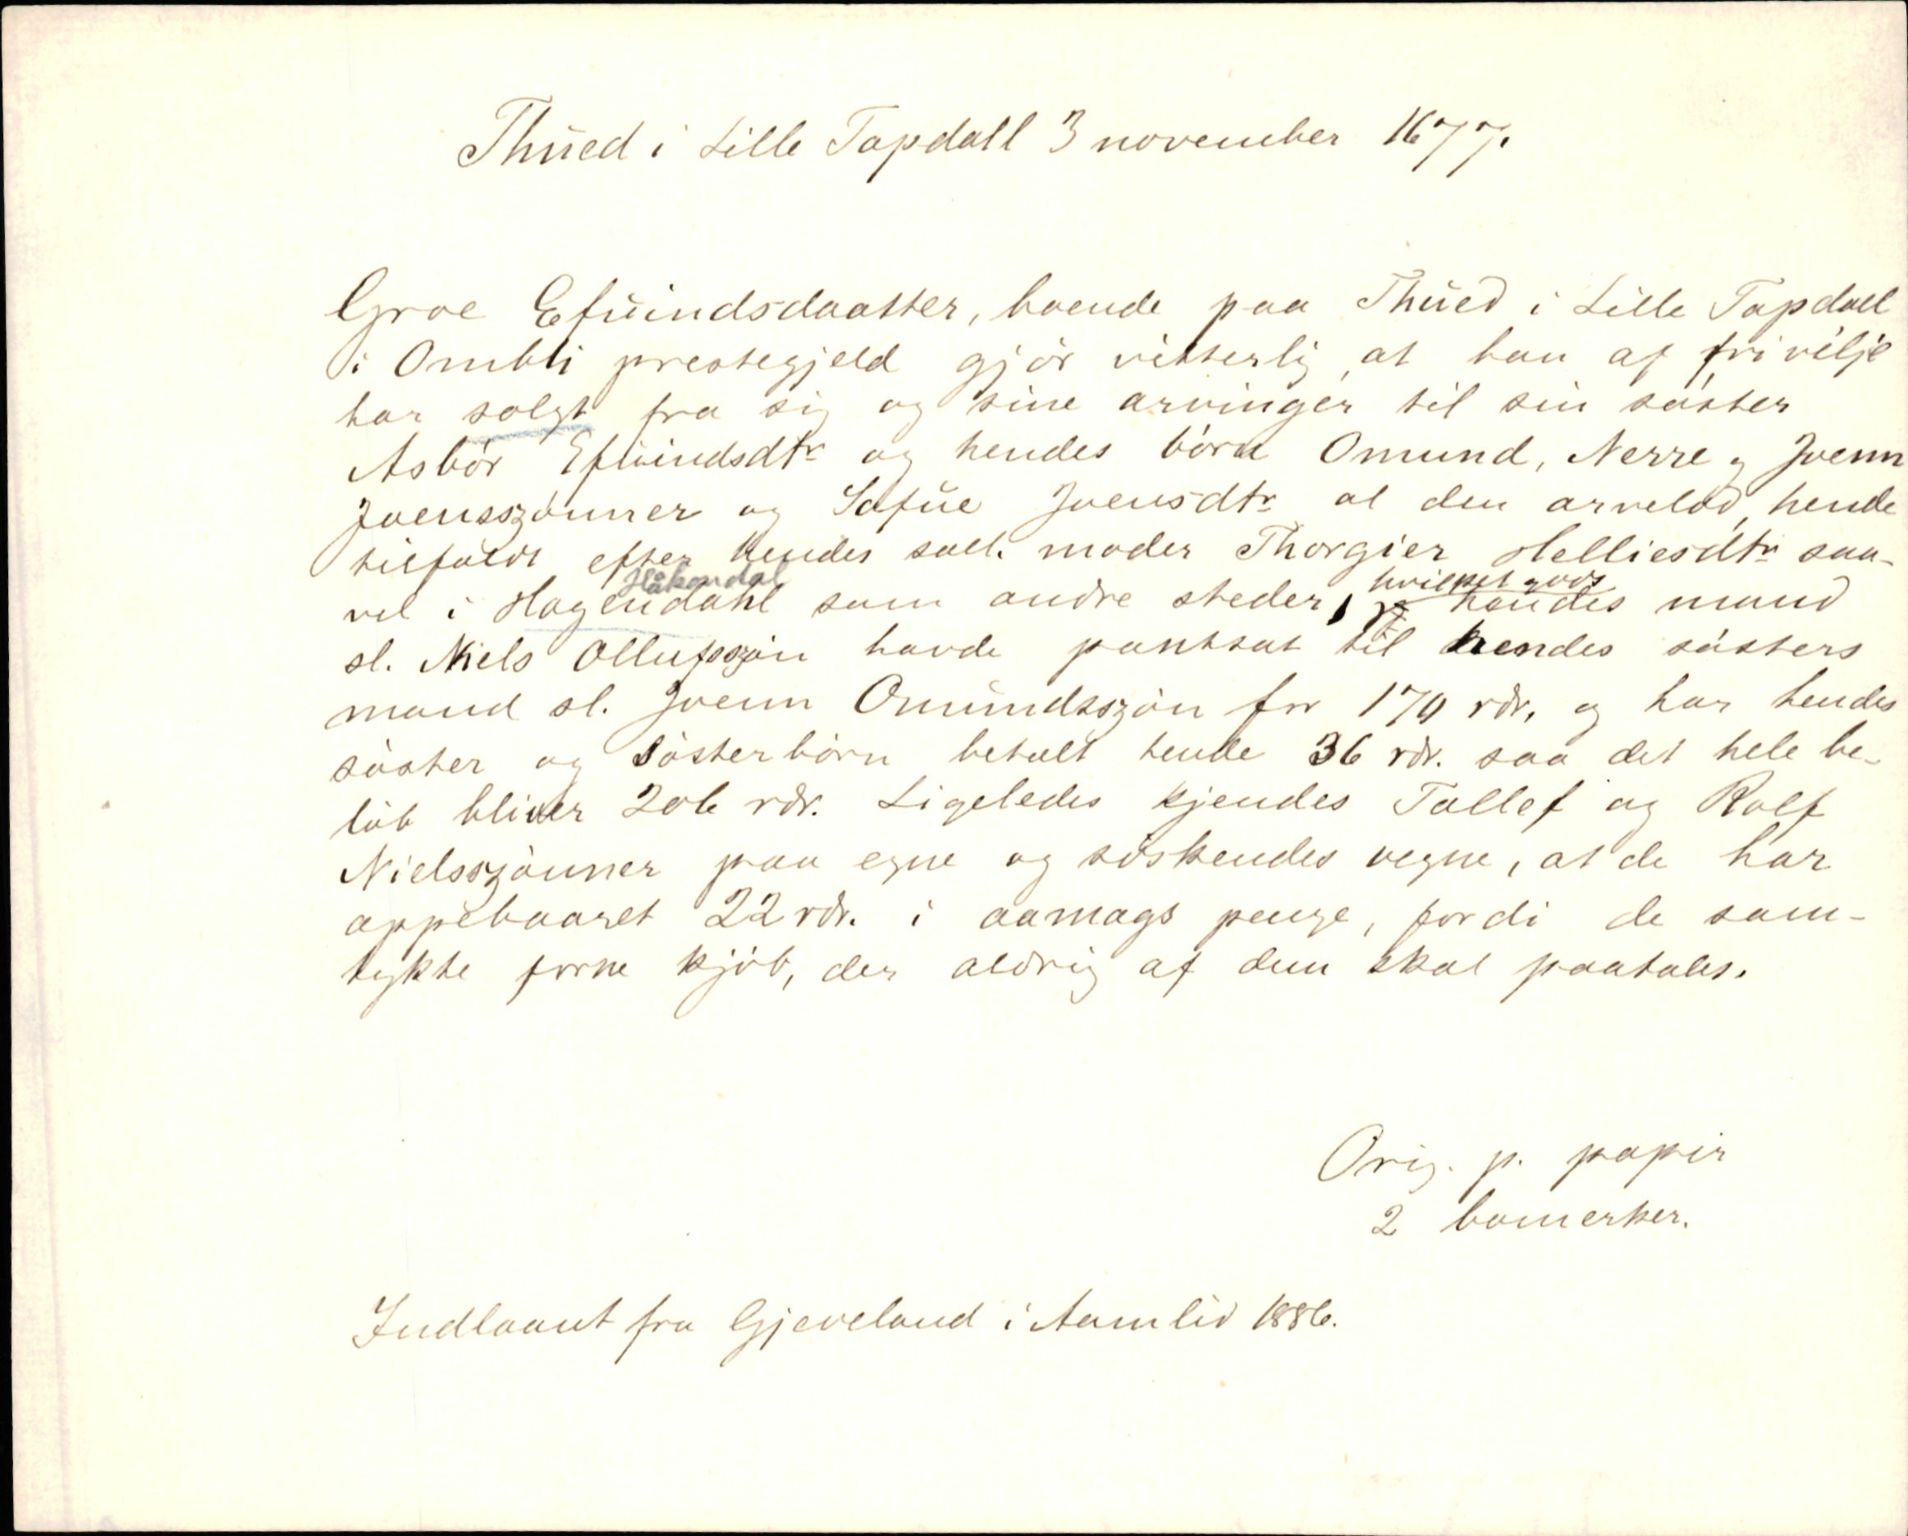 Thüed i Lille Tapdall 3 november 1677.
Groe Efuindsdaatter, boende paa Thüed i Lille Tapdall
i Ombli prestegjeld gjör vitterlig, at hun af fri vilje
har solgt fra sig og sine arvinger til sin söster
Asbör Efuindsdtr og hendes börn Omund, Nerre og Joenn
Joensszönner og Safüe Joensdtr al den arvelod, hende
tilfaldt efter hendes sall. moder Thorgier Helliesdtr saa-
Håkendal hvilket gods
vel i Hagendahl som andre steder, hendes mand
sl. Niels Ollufsszön havde pantsat til hendes sösters
mand sl. Joenn Omündsszön for 170 rdr, og har hendes
söster og sösterbörn betalt hende 36 rdr. saa det hele be-
löb bliver 206 rdr. Ligeledes kjendes Tallef og Rolf
Nielsszönner paa egne og söskendes vegne, at de har
oppebaaret 22 rdr. i aamags penge, fordi de sam-
tykte forne kjöb, der aldrig af dem skal paatales.
Orig. p. papir
2 bomerker.
Indlaant fra Gjeveland i Aamlid 1886.